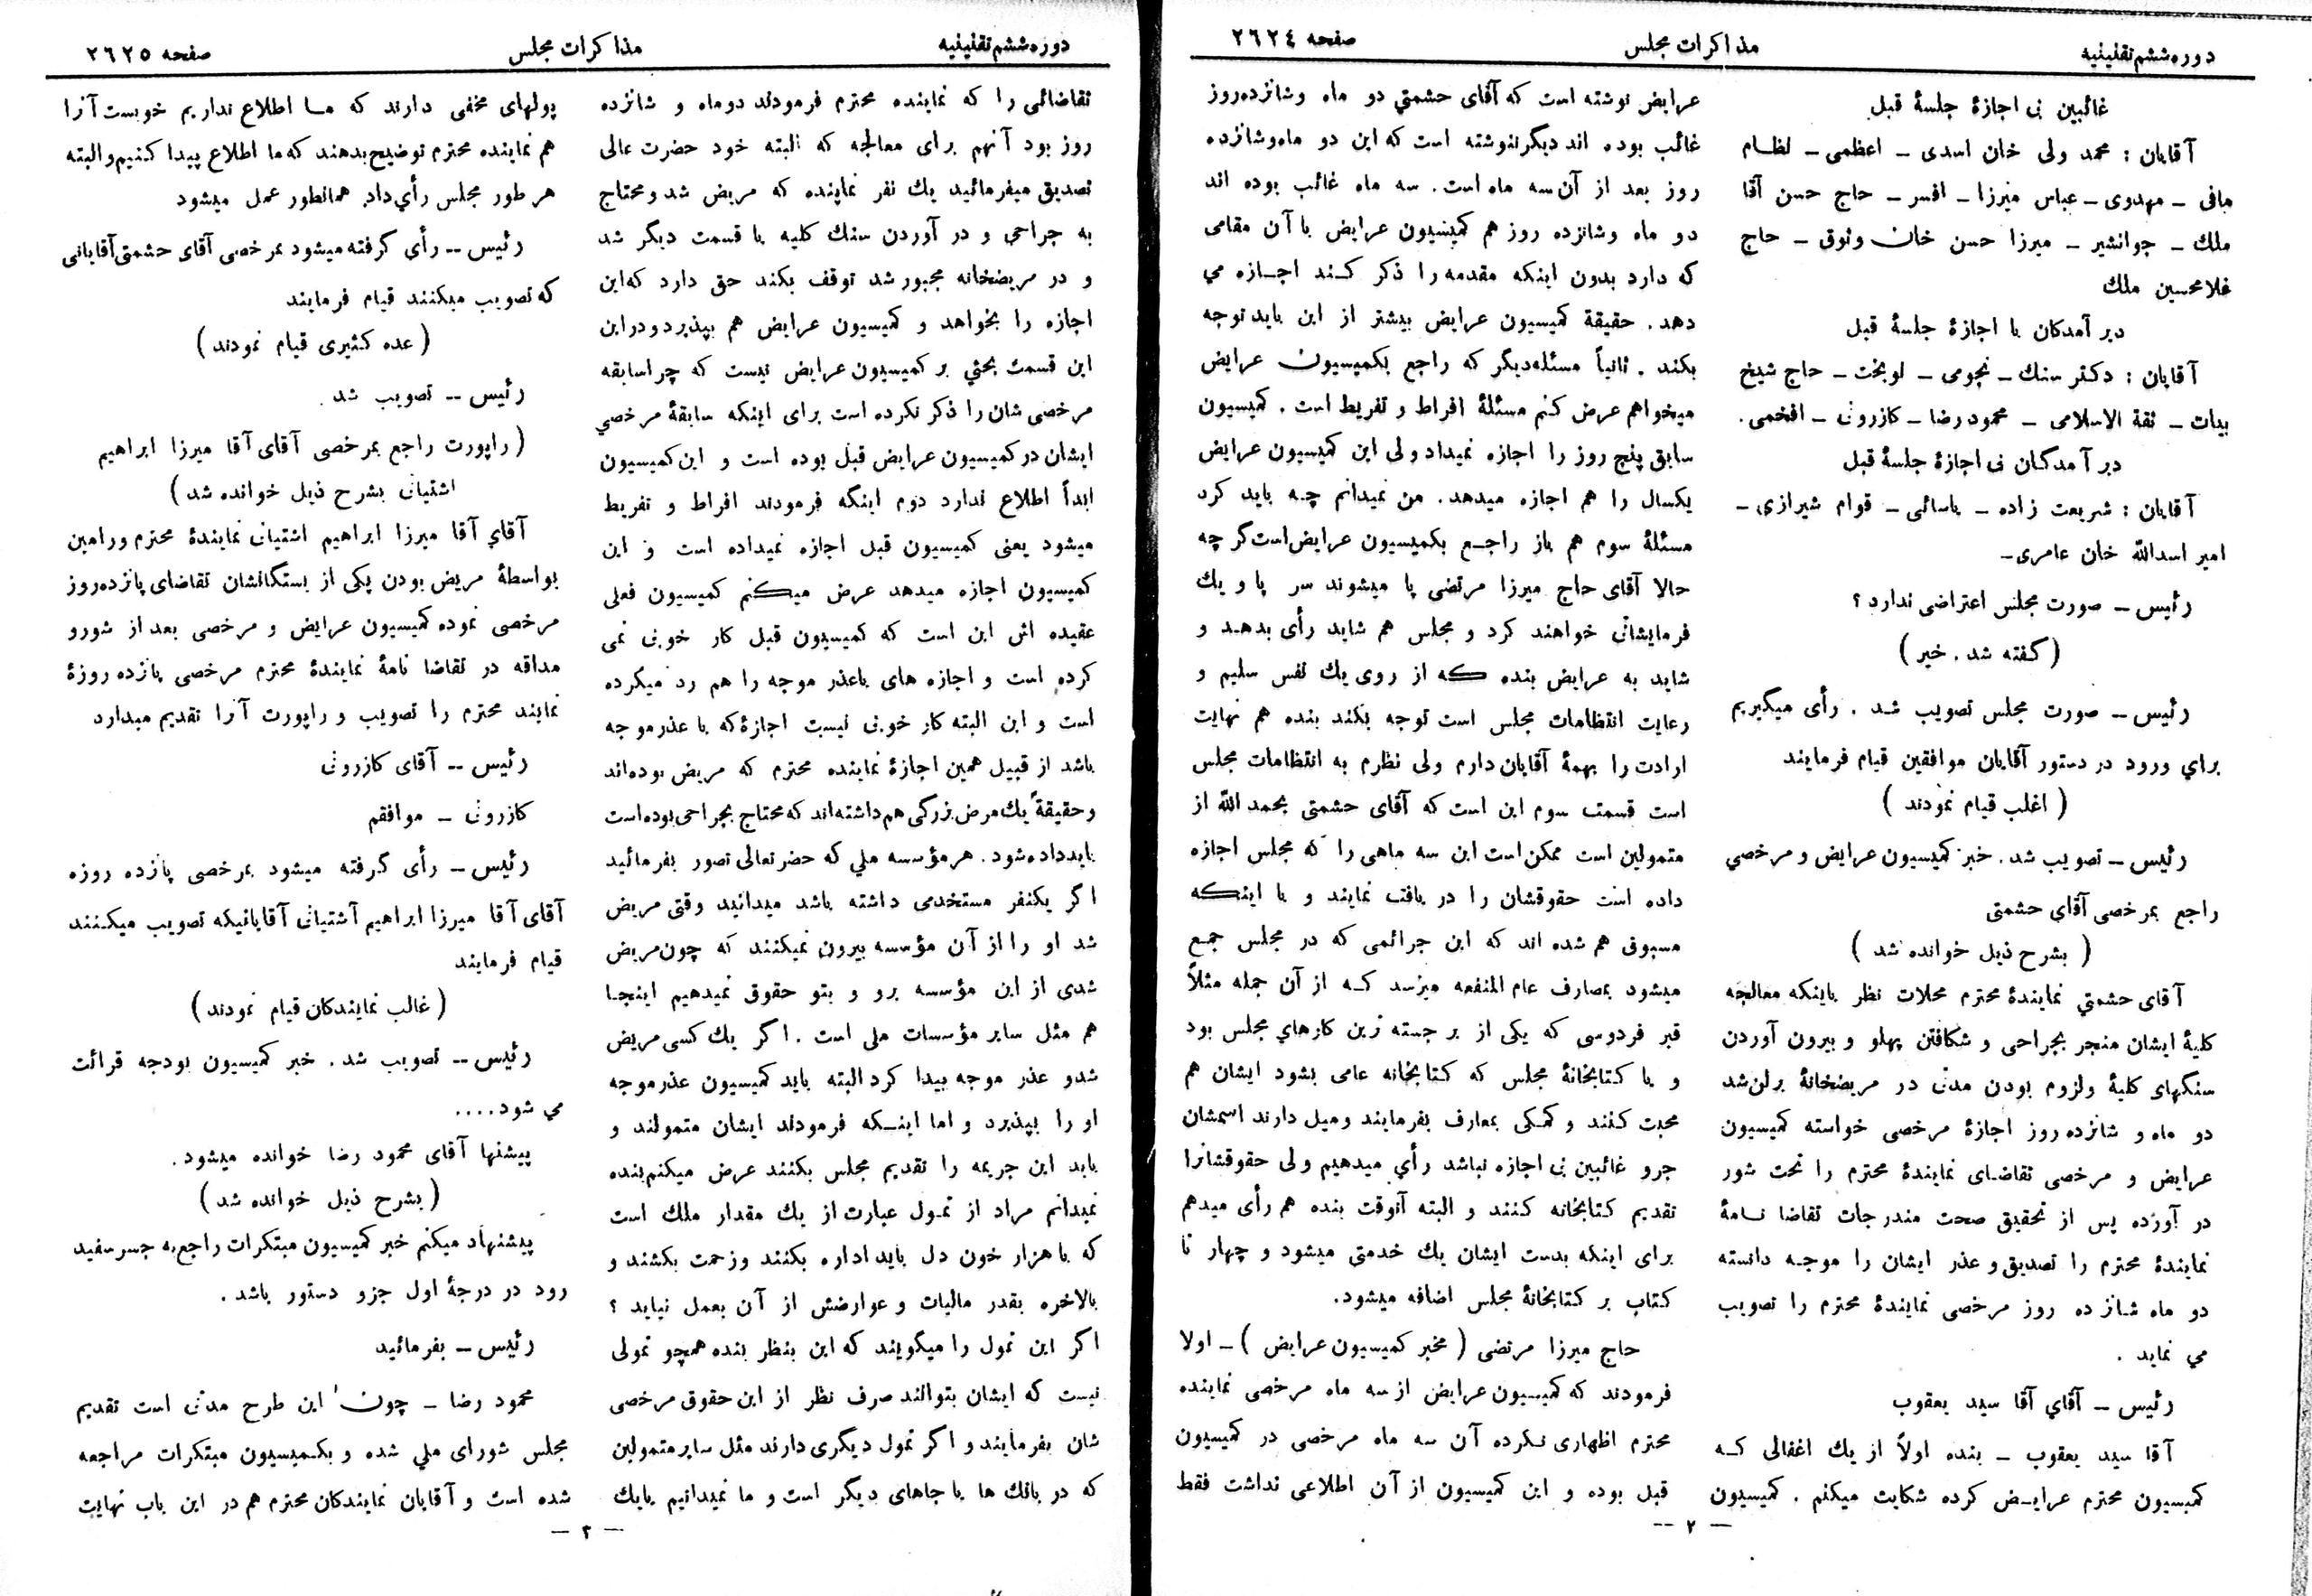 دوره ششم تقنینیه
مذاکرات مجلس
صفحه ۲٦۲٤
غائبین بی اجازهٔ جلسهٔ قبل
آقایان : محمد ولی خان اسدی ـ اعظمی ـ نظام
مافی ـ مهدوی ـ عباس میرزا ـ افسر ـ حاج حسن آقا
ملك ـ جوانشیر ـ میرزا حسن خان وثوق ـ حاج
غلامحسین ملك
دیر آمدگان با اجازهٔ جلسهٔ قبل
آقایان : دکتر سنك ـ نجومی ـ نوبخت ـ حاج شیخ
بیات ـ ثقة الاسلامی ـ محمود رضا ـ کازرونی ـ افخمی .
دیر آمدگان بی اجازهٔ جلسهٔ قبل
آقایان : شریعت زاده ـ یاسائی ـ قوام شیرازی ـ
امیر اسدالله خان عامری ـ
رئیس ـ صورت مجلس اعتراضی ندارد ؟
( گفته شد . خیر )
رئیس ـ صورت مجلس تصویب شد . رأی میگیریم
برای ورود در دستور آقایان موافقین قیام فرمایند
( اغلب قیام نمودند )
رئیس ـ تصویب شد . خبر کمیسیون عرایض و مرخصی
راجع بمرخصی آقای حشمتی
( بشرح ذیل خوانده شد )
آقای حشمتی نمایندهٔ محترم محلات نظر باینکه معالجه
کلیهٔ ایشان منجر بجراحی و شکافتن پهلو و بیرون آوردن
سنگهای کلیهٔ ولزوم بودن مدتی در مریضخانهٔ برلن شد
دو ماه و شانزده روز اجازهٔ مرخصی خواسته کمیسیون
عرایض و مرخصی تقاضای نمایندهٔ محترم را تحت شور
در آورده پس از تحقیق صحت مندرجات تقاضا نامهٔ
نمایندهٔ محترم را تصدیق و عذر ایشان را موجه دانسته
دو ماه شانزده روز مرخصی نمایندهٔ محترم را تصویب
می نماید .
رئیس ـ آقای آقا سید یعقوب
آقا سید یعقوب ـ بنده اولاً از یك اغفالی که
کمیسیون محترم عرایض کرده شکایت میکنم . کمیسیون
عرایض نوشته است که آقای حشمتی دو ماه وشانزده روز
غائب بوده اند دیگر ننوشته است که این دو ماه وشانزده
روز بعد از آن سه ماه است . سه ماه غائب بوده اند
دو ماه وشانزده روز هم کمیسیون عرایض با آن مقامی
که دارد بدون اینکه مقدمه را ذکر کند اجازه می
دهد . حقیقة کمیسیون عرایض بیشتر از این باید توجه
بکند . ثانیاً مسئله دیگر که راجع بکمیسیون عرایض
میخواهم عرض کنم مسئلهٔ افراط و تفریط است . کمیسیون
سابق پنج روز را اجازه نمیداد ولی این کمیسیون عرایض
یکسال را هم اجازه میدهد . من نمیدانم چه باید کرد
مسئلهٔ سوم هم باز راجع بکمیسیون عرایض است گرچه
حالا آقای حاج میرزا مرتضی پا میشوند سر پا و یك
فرمایشاتی خواهند کرد و مجلس هم شاید رأی بدهد و
شاید به عرایض بنده که از روی یك نفس سلیم و
رعایت انتظامات مجلس است توجه بکند بنده هم نهایت
ارادت را بهمهٔ آقایان دارم ولی نظرم به انتظامات مجلس
است قسمت سوم این است که آقای حشمتی بحمد الله از
متمولین است ممکن است این سه ماهی را که مجلس اجازه
داده است حقوقشان را دریافت نمایند و با اینکه
مسبوق هم شده اند که این جرائمی که در مجلس جمع
میشود بمصارف عام المنفعه میرسد که از آن جمله مثلاً
قبر فردوسی که یکی از برجسته ترین کارهای مجلس بود
و یا کتابخانهٔ مجلس که کتابخانه عامی بشود ایشان هم
محبت کنند و کمکی بمعارف بفرمایند و میل دارند اسمشان
جزو غائبین بی اجازه نباشد رأی میدهیم ولی حقوقشانرا
تقدیم کتابخانه کنند و البته آنوقت بنده هم رأی میدهم
برای اینکه بدست ایشان یك خدمتی میشود و چهار تا
کتاب بر کتابخانهٔ مجلس اضافه میشود.
حاج میرزا مرتضی ( مخبر کمیسیون عرایض ) ـ اولا
فرمودند که کمیسیون عرایض از سه ماه مرخصی نماینده
محترم اظهاری نکرده آن سه ماه مرخصی در کمیسیون
قبل بوده و این کمیسیون از آن اطلاعی نداشت فقط
— ۲ —
دوره ششم تقنینیه
مذاکرات مجلس
صفحه ۲٦۲٥
تقاضائی را که نماینده محترم فرمودند دوماه و شانزده
روز بود آنهم برای معالجه که البته خود حضرت عالی
تصدیق میفرمائید یك نفر نماینده که مریض شد و محتاج
به جراحی و در آوردن سنك کلیه یا قسمت دیگر شد
و در مریضخانه مجبور شد توقف بکند حق دارد که این
اجازه را بخواهد و کمیسیون عرایض هم بپذیرد و در این
این قسمت بحثی بر کمیسیون عرایض نیست که چرا سابقه
مرخصی شان را ذکر نکرده است برای اینکه سابقهٔ مرخصی
ایشان در کمیسیون عرایض قبل بوده است و این کمیسیون
ابداً اطلاع ندارد دوم اینکه فرمودند افراط و تفریط
میشود یعنی کمیسیون قبل اجازه نمیداده است و این
کمیسیون اجازه میدهد عرض میکنم کمیسیون فعلی
عقیده اش این است که کمیسیون قبل کار خوبی نمی
کرده است و اجازه های باعذر موجه را هم رد میکرده
است و این البته کار خوبی نیست اجازهٔ که با عذر موجه
باشد از قبیل همین اجازهٔ نماینده محترم که مریض بوده اند
و حقیقةً یك مرض بزرگی هم داشته اند که محتاج بجراحی بوده است
باید داده شود . هر مؤسسه ملی که حضرتعالی تصور بفرمائید
اگر یکنفر مستخدمی داشته باشد میدانید وقتی مریض
شد او را از آن مؤسسه بیرون نمیکنند که چون مریض
شدی از این مؤسسه برو و بتو حقوق نمیدهیم اینجا
هم مثل سایر مؤسسات ملی است . اگر یك کسی مریض
شد و عذر موجه پیدا کرد البته باید کمیسیون عذر موجه
او را بپذیرد و اما اینکه فرمودند ایشان متمولند و
باید این جریمه را تقدیم مجلس بکنند عرض میکنم بنده
نمیدانم مراد از تمول عبارت از یك مقدار ملك است
که با هزار خون دل باید اداره بکنند و زحمت بکشند و
بالاخره بقدر مالیات و عوارضش از آن بعمل نیاید ؟
اگر این تمول را میگویند که این بنظر بنده همچو تمولی
نیست که ایشان بتوانند صرف نظر از این حقوق مرخصی
شان بفرمایند و اگر تمول دیگری دارند مثل سایر متمولین
که در بانك ها یا جاهای دیگر است و ما نمیدانیم یا یك
پولهای مخفی دارند که ما اطلاع نداریم خوبست آنرا
هم نماینده محترم توضیح بدهند که ما اطلاع پیدا کنیم و البته
هر طور مجلس رأی داد همانطور عمل میشود
رئیس ـ رأی گرفته میشود بمرخصی آقای حشمتی آقایانی
که تصویب میکنند قیام فرمایند
( عده کثیری قیام نمودند )
رئیس ـ تصویب شد .
( راپورت راجع بمرخصی آقای آقا میرزا ابراهیم
اشتیانی بشرح ذیل خوانده شد )
آقای آقا میرزا ابراهیم اشتیانی نمایندهٔ محترم ورامین
بواسطهٔ مریض بودن یکی از بستگانشان تقاضای پانزده روز
مرخصی نموده کمیسیون عرایض و مرخصی بعد از شور و
مداقه در تقاضا نامهٔ نمایندهٔ محترم مرخصی پانزده روزهٔ
نمایند محترم را تصویب و راپورت آنرا تقدیم میدارد
رئیس ـ آقای کازرونی
کازرونی ـ موافقم
رئیس ـ رأی گرفته میشود بمرخصی پانزده روزه
آقای آقا میرزا ابراهیم آشتیانی آقایانیکه تصویب میکنند
قیام فرمایند
( غالب نمایندگان قیام نمودند )
رئیس ـ تصویب شد . خبر کمیسیون بودجه قرائت
می شود....
پیشنها آقای محمود رضا خوانده میشود .
( بشرح ذیل خوانده شد )
پیشنهاد میکنم خبر کمیسیون مبتکرات راجع به جسر سفید
رود در درجهٔ اول جزو دستور باشد .
رئیس ـ بفرمائید
محمود رضا ـ چون این طرح مدتی است تقدیم
مجلس شورای ملی شده و بکمیسیون مبتکرات مراجعه
شده است و آقایان نمایندگان محترم هم در این باب نهایت
— ۳ —